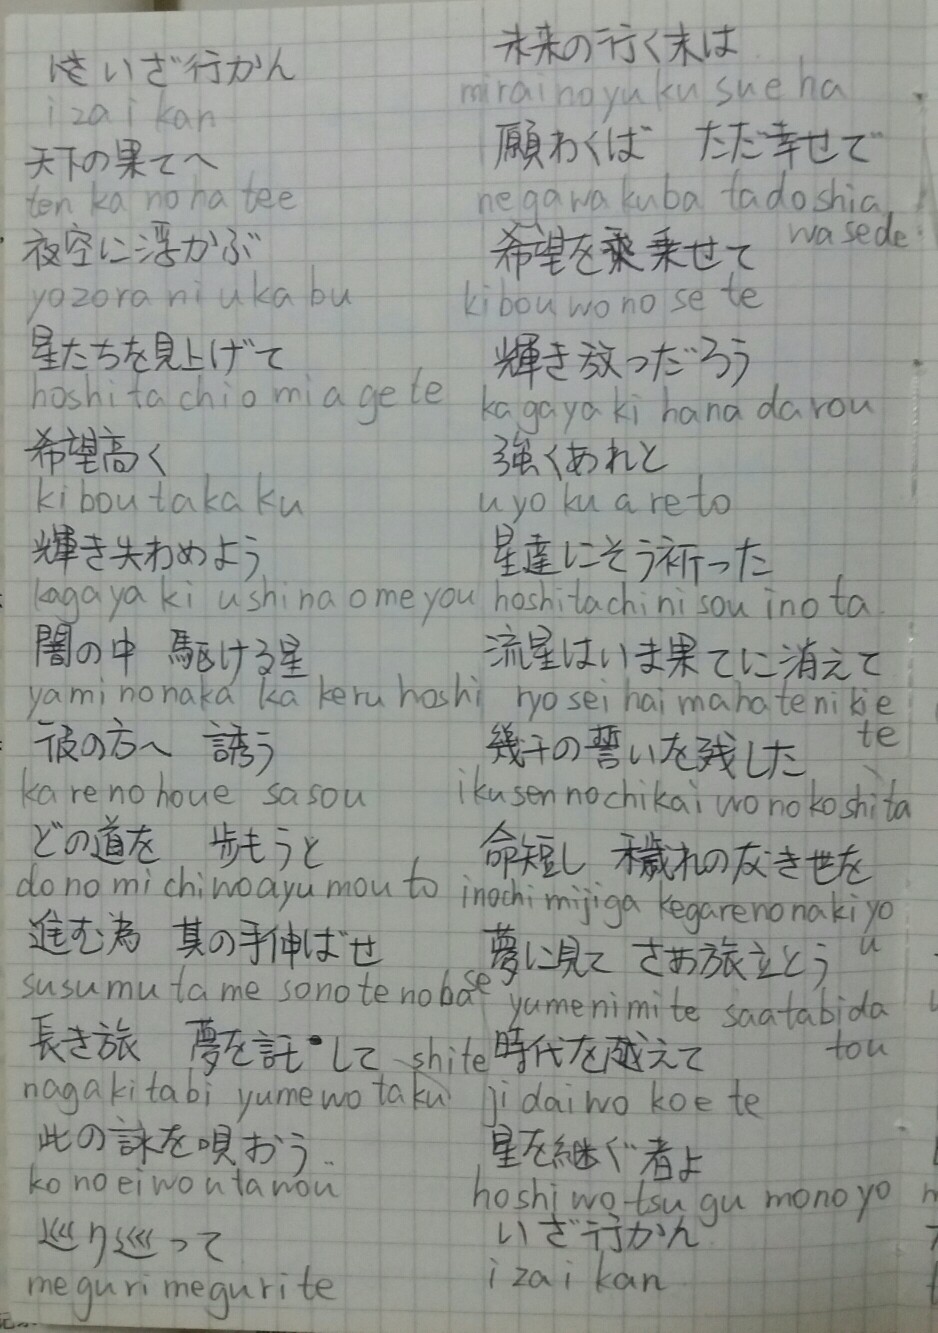 いざ行かん
izaikan
天下の果てへ
ten ka no ha tee
夜空に浮かぶ
yozora ni uka bu
星たちを見上げて
hoshi ta chi o mi a ge te
希望高く
ki bou ta ka ku
輝き失わめよう
kaga ya ki ushina ome you
闇の中 駆ける星
yami no naka ka keru hoshi
彼の方へ 誘う
ka re no houe sa sou
どの道を 歩もうと
do no mi chi wo ayu mou to
進む為 其の手伸ばせ
susumu ta me sono te no base
長き旅 夢を託して
naga ki ta bi yume wo taku shite
此の詠を唄おう
ko no ei wo u ta wou
巡り巡って
me gu ri me gu ri te
未来の行く末は
mirai no yu ku sue ha
願わくば ただ幸せで
ne ga wa kuba ta da shia
wa se de
希望を乗せて
ki bou wo no se te
輝き放っだろう
ka ga ya ki hana da rou
強くあれと
u yo ku a re to
星達にそう祈った
hoshi ta chi ni sou ino ta
流星はいま果てに消えて
ryo sei ha i ma ha te ni kie
te
幾千の誓いを残した
iku sen no chi kai wo no ko shi ta
命短し 穢れの友き世を
inochi mijiga kegare no naki yo
u
夢に見て さあ旅立とう
yume ni mi te saa ta bi da
tou
時代を越えて
ji dai wo koe te
星を継ぐ者よ
hoshi wo tsu gu mono yo
いざ行かん
i za i kan